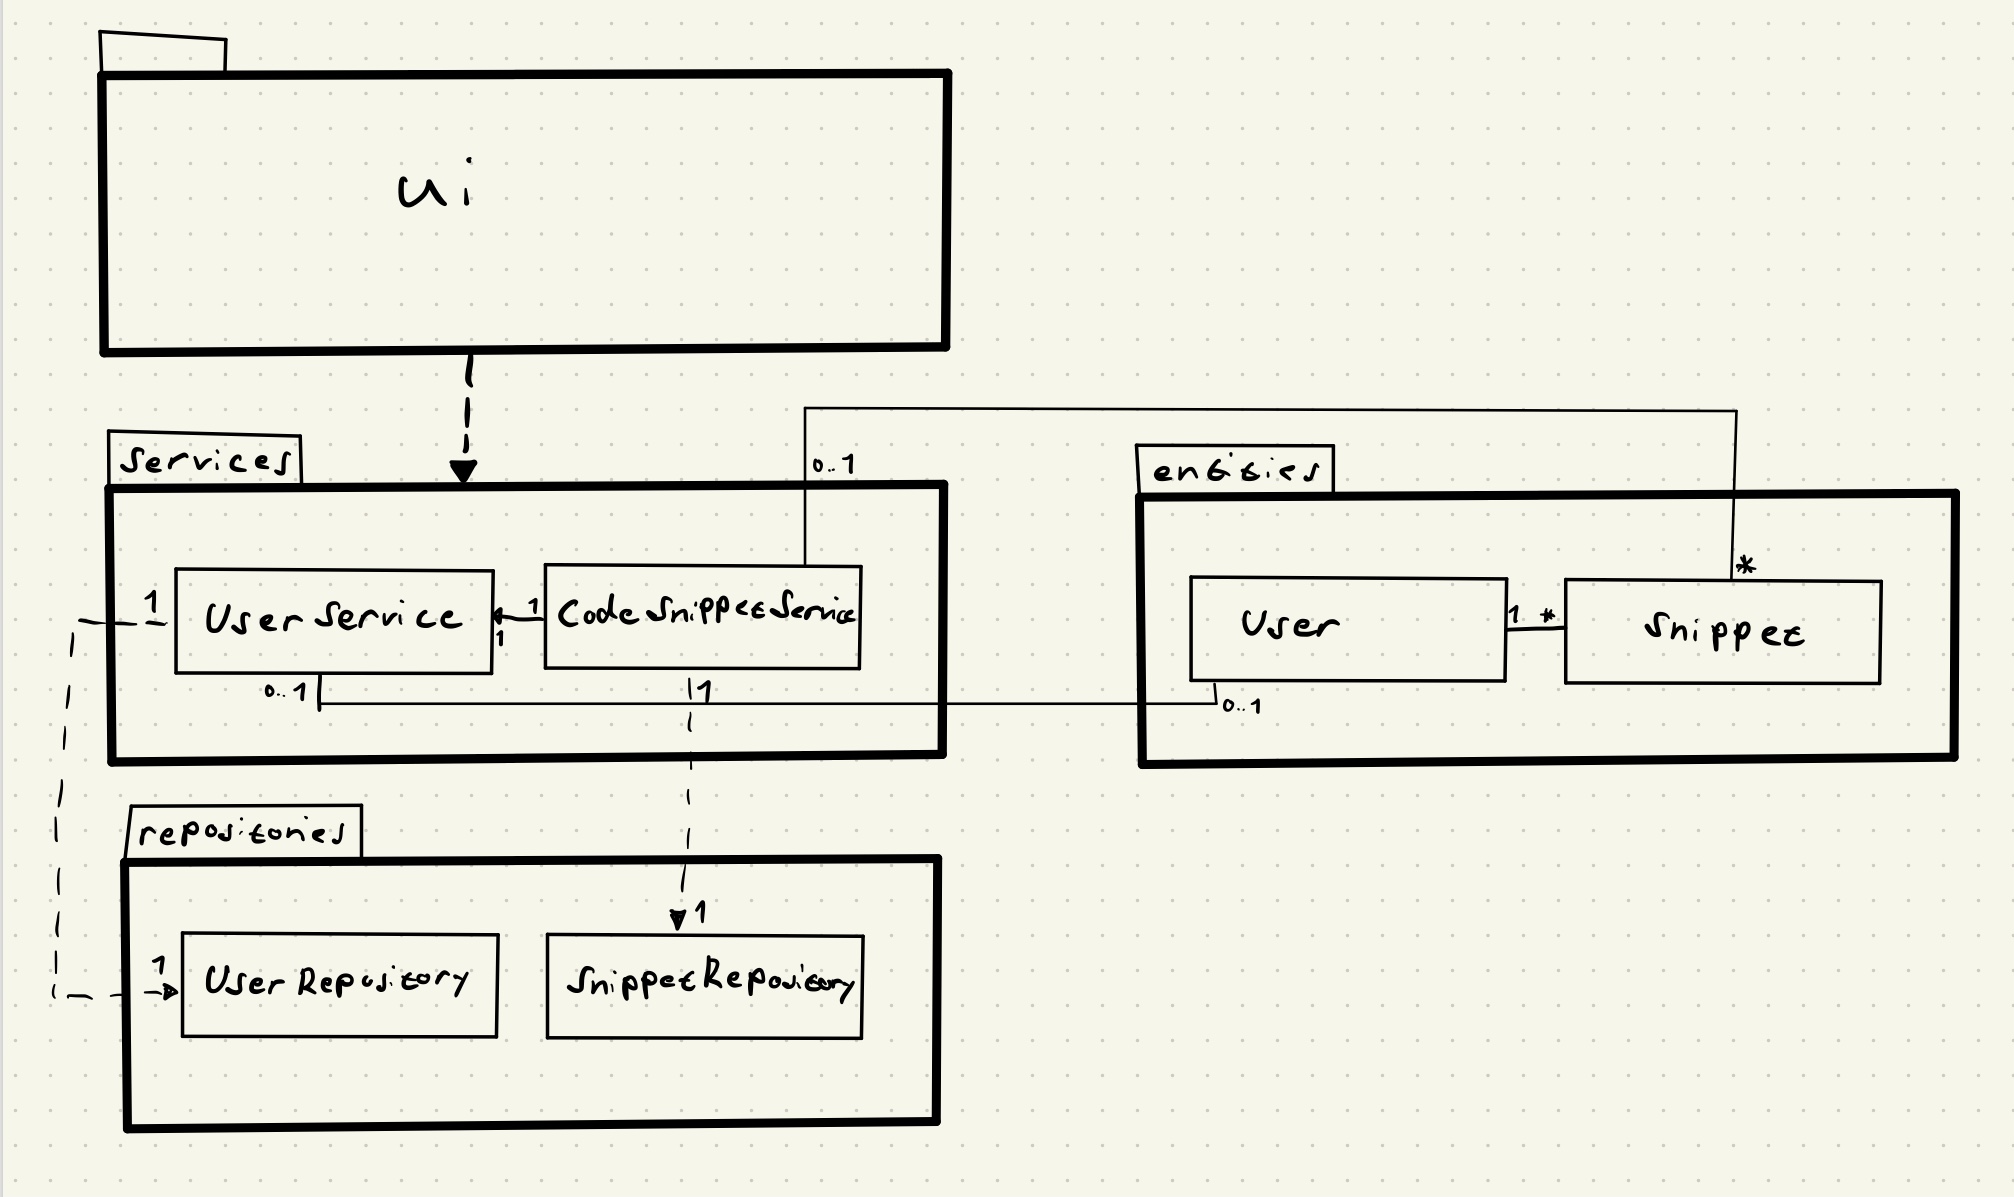 ui
services
0..1
entities
*
1
UserService
1
1
CodeSnippetService
User
1 *
Snippet
0..1
1
0..1
repositories
1
1
UserRepository
SnippetRepository